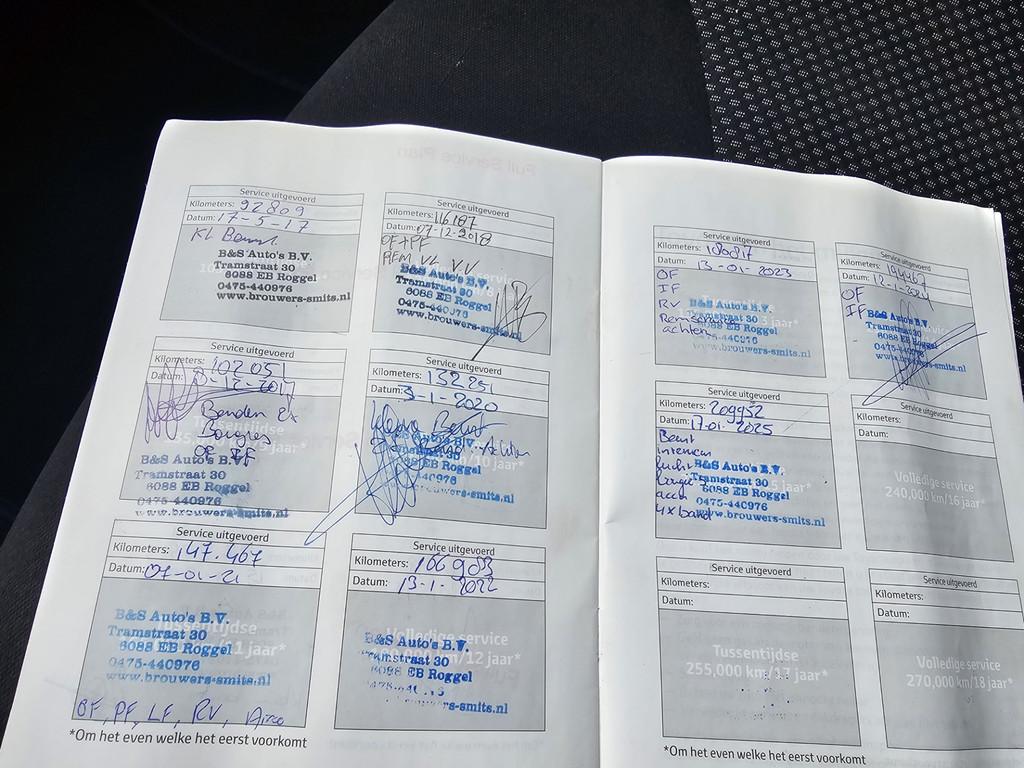 Service uitgevoerd
Kilometers: 92809
Datum: 17-5-17
KL Beurt
B&S Auto's B.V.
Tramstraat 30
6088 EB Roggel
0475-440976
www.brouwers-smits.nl
Service uitgevoerd
Kilometers: 116187
Datum: 07-12-2018
OF+PF
REM VL VV
B&S Auto's B.V.
Tramstraat 30
6088 EB Roggel
0475-440976
www.brouwers-smits.nl
Service uitgevoerd
Kilometers: 102051
Datum:
Banden 2x
Bougies
OF IF
B&S Auto's B.V.
Tramstraat 30
6088 EB Roggel
0475-440976
www.brouwers-smits.nl
Service uitgevoerd
Kilometers: 132251
Datum: 3-1-2020
Kleine Beurt
B&S Auto's B.V.
Tramstraat 30
6088 EB Roggel
0475-440976
www.brouwers-smits.nl
Service uitgevoerd
Kilometers: 147.467
Datum: 07-01-21
Tussentijdse
B&S Auto's B.V.
Tramstraat 30
6088 EB Roggel
0475-440976
www.brouwers-smits.nl
OF, PF, LF, RV, Airco
Service uitgevoerd
Kilometers: 166983
Datum: 13-1-2022
Volledige service
km/12 jaar*
B&S Auto's B.V.
Tramstraat 30
6088 EB Roggel
*Om het even welke het eerst voorkomt
Service uitgevoerd
Kilometers: 180817
Datum: 13-01-2023
OF
IF
RV
Remschijven
achter
B&S Auto's B.V.
Tramstraat 30
6088 EB Roggel
0475-440976
www.brouwers-smits.nl
Service uitgevoerd
Kilometers: 194467
Datum: 12-1-2024
OF
IF
B&S Auto's B.V.
Tramstraat 30
6088 EB Roggel
0475-440976
www.brouwers-smits.nl
Service uitgevoerd
Kilometers: 209952
Datum: 17-01-2025
Beurt
interieur
4x band
B&S Auto's B.V.
Tramstraat 30
6088 EB Roggel
0475-440976
www.brouwers-smits.nl
Service uitgevoerd
Kilometers:
Datum:
Volledige service
240,000 km/16 jaar*
Service uitgevoerd
Kilometers:
Datum:
Tussentijdse
255,000 km/17 jaar*
Service uitgevoerd
Kilometers:
Datum:
Volledige service
270,000 km/18 jaar*
*Om het even welke het eerst voorkomt